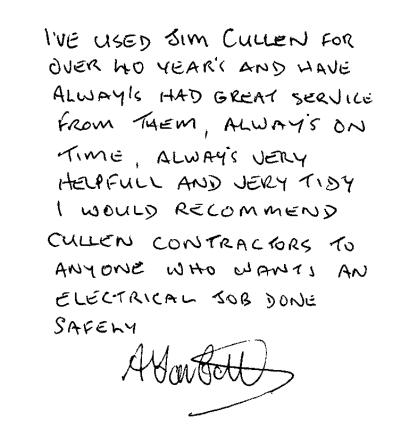 I'VE USED JIM CULLEN FOR
OVER 40 YEAR'S AND HAVE
ALWAY'S HAD GREAT SERVICE
FROM THEM, ALWAY'S ON
TIME, ALWAY'S VERY
HELPFULL AND VERY TIDY
I WOULD RECOMMEND
CULLEN CONTRACTORS TO
ANYONE WHO WANTS AN
ELECTRICAL JOB DONE
SAFELY